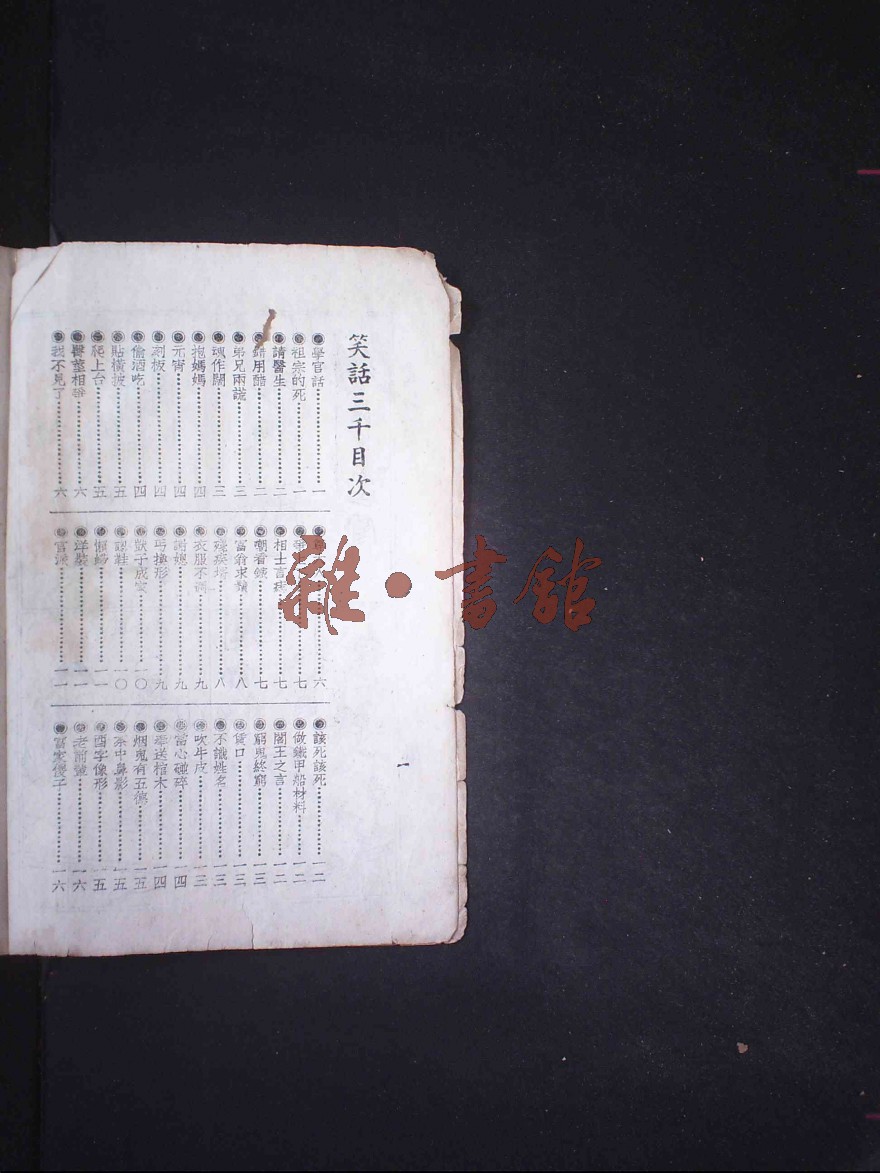 笑話三千目次
學官話……一
祖宗的死……一
請醫生……二
錯用醋……二
弟兄兩謊……三
魂作鬧……三
抱媽媽……四
元宵……四
刻板……四
偷酒吃……四
貼橫披……五
爬上台……五
臀莖相爭……六
我不見了……六
六
七
相士言……七
嘲看鏡……七
富翁求……八
殘疾……八
衣服不……九
謝媳……九
丐換形……九
獃子成家……一〇
謎鞋……一〇
懶婦……一一
洋裝……一一
官派……一一
該死該死……一二
做鐵甲船材料……一二
閻王之言……一二
窮鬼終窮……一三
賃口……一三
不識姓名……一三
吹牛皮……一三
當心碰碎……一四
奉送棺木……一四
烟鬼有五德……一五
茶中鼻影……一五
酉字像形……一五
老前輩……一六
富家傻子……一六
一
雜·書館